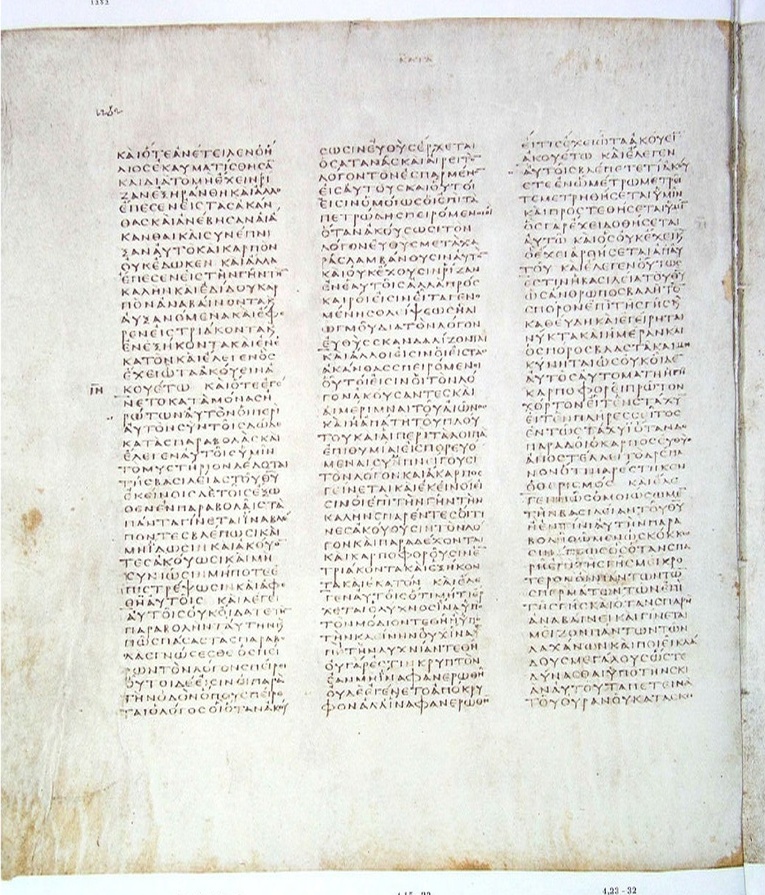 1282
ΚΑΤΑ
ΚΑΙΟΤΕΑΝΕΤΕΙΛΕΝΟΗ
ΛΙΟϹΕΚΑΥΜΑΤΙϹΘΗϹΑ
ΚΑΙΔΙΑΤΟΜΗΕΧΕΙΝΡΙ
ΖΑΝΕΞΗΡΑΝΘΗΚΑΙΑΛΛΟ
ΕΠΕϹΕΝΕΙϹΤΑϹΑΚΑΝ
ΘΑϹΚΑΙΑΝΕΒΗϹΑΝΑΙΑ
ΚΑΝΘΑΙΚΑΙϹΥΝΕΠΝΙ
ΞΑΝΑΥΤΟΚΑΙΚΑΡΠΟΝ
ΟΥΚΕΔΩΚΕΝ ΚΑΙΑΛΛΑ
ΕΠΕϹΕΝΕΙϹΤΗΝΓΗΝΤΗ
ΚΑΛΗΝΚΑΙΕΔΙΔΟΥΚΑΡ
ΠΟΝΑΝΑΒΑΙΝΟΝΤΑΚ
ΑΥΞΑΝΟΜΕΝΑΚΑΙΕΦΕ
ΡΕΝΕΙϹΤΡΙΑΚΟΝΤΑΚ
ΕΝΕΞΗΚΟΝΤΑΚΑΙΕΝΕ
ΚΑΤΟΝΚΑΙΕΛΕΓΕΝΟϹ
ΕΧΕΙΩΤΑΑΚΟΥΕΙΝΑ
ΙΗ ΚΟΥΕΤΩ ΚΑΙΟΤΕΕΓΕ
ΝΕΤΟΚΑΤΑΜΟΝΑϹΗ
ΡΩΤΩΝΑΥΤΟΝΟΙΠΕΡΙ
ΑΥΤΟΝϹΥΝΤΟΙϹΔΩΔΕ
ΚΑΤΑϹΠΑΡΑΒΟΛΑϹΚΑΙ
ΕΛΕΓΕΝΑΥΤΟΙϹΥΜΙΝ
ΤΟΜΥϹΤΗΡΙΟΝΔΕΔΟΤΑΙ
ΤΗϹΒΑϹΙΛΕΙΑϹΤΟΥΘΥ
ΕΚΕΙΝΟΙϹΔΕΤΟΙϹΕΞΩ
ΟΘΕΝΕΝΠΑΡΑΒΟΛΑΙϹΤΑ
ΠΑΝΤΑΓΙΝΕΤΑΙΙΝΑΒΛΕ
ΠΟΝΤΕϹΒΛΕΠΩϹΙΚΑΙ
ΜΗΙΔΩϹΙΝ ΚΑΙΑΚΟΥΟ
ΤΕϹΑΚΟΥΩϹΙΚΑΙΜΗ
ϹΥΝΙΩϹΙΝΜΗΠΟΤΕΕ
ΠΙϹΤΡΕΨΩϹΙΝΚΑΙΑΦΕ
ΘΗΑΥΤΟΙϹ ΚΑΙΛΕΓΕΙ
ΑΥΤΟΙϹΟΥΚΟΙΔΑΤΕΤΗ
ΠΑΡΑΒΟΛΗΝΤΑΥΤΗΝΚ
ΠΩϹΠΑϹΑϹΤΑϹΠΑΡΑΒΟ
ΛΑϹΓΝΩϹΕϹΘΕ ΟϹΠΕΙ
ΡΩΝΤΟΝΛΟΓΟΝϹΠΕΙΡΕΙ
ΟΥΤΟΙΔΕΕΙϹΙΝΟΙΠΑΡΑ
ΤΗΝΟΔΟΝΟΠΟΥϹΠΕΙΡΕ
ΤΑΙΟΛΟΓΟϹΟΙΟΤΑΝΑΚΟΥ
ϹΩϹΙΝΕΥΘΥϹΕΡΧΕΤΑΙ
ΟϹΑΤΑΝΑϹΚΑΙΑΙΡΕΙΤΟ
ΛΟΓΟΝΤΟΝΕϹΠΑΡΜΕΝΟ
ΕΙϹΑΥΤΟΥϹΚΑΙΟΥΤΟΙ
ΕΙϹΙΝΟΜΟΙΩϹΟΙΕΠΙΤΑ
ΠΕΤΡΩΔΗϹΠΕΙΡΟΜΕΝΟΙΟΙ
ΟΤΑΝΑΚΟΥϹΩϹΙΤΟΝ
ΛΟΓΟΝΕΥΘΥϹΜΕΤΑΧΑ
ΡΑϹΛΑΜΒΑΝΟΥϹΙΝΑΥΤΟ
ΚΑΙΟΥΚΕΧΟΥϹΙΝΡΙΖΑΝ
ΕΝΕΑΥΤΟΙϹΑΛΛΑΠΡΟϹ
ΚΑΙΡΟΙΕΙϹΙΝΕΙΤΑΓΕΝΟ
ΜΕΝΗϹΘΛΕΙΨΕΩϹΗΔΙ
ΩΓΜΟΥΔΙΑΤΟΝΛΟΓΟΝ
ΕΥΘΥϹϹΚΑΝΔΑΛΙΖΟΝΤΑΙ
ΚΑΙΑΛΛΟΙΕΙϹΙΝΟΙΕΙϹΤΑϹ
ΑΚΑΝΘΑϹϹΠΕΙΡΟΜΕΝΟΙ
ΟΥΤΟΙΕΙϹΙΝΟΙΤΟΝΛΟ
ΓΟΝΑΚΟΥϹΑΝΤΕϹΚΑΙ
ΑΙΜΕΡΙΜΝΑΙΤΟΥΑΙΩΝΟϹ
ΚΑΙΗΑΠΑΤΗΤΟΥΠΛΟΥ
ΤΟΥΚΑΙΑΙΠΕΡΙΤΑΛΟΙΠΑ
ΕΠΙΘΥΜΙΑΙΕΙϹΠΟΡΕΥΟ
ΜΕΝΑΙϹΥΝΠΝΙΓΟΥϹΙ
ΤΟΝΛΟΓΟΝΚΑΙΑΚΑΡΠΟϹ
ΓΕΙΝΕΤΑΙΚΑΙΕΚΕΙΝΟΙΕΙ
ϹΙΝΟΙΕΠΙΤΗΝΓΗΝΤΗΝ
ΚΑΛΗΝϹΠΑΡΕΝΤΕϹΟΙΤΙ
ΝΕϹΑΚΟΥΟΥϹΙΝΤΟΝΛΟ
ΓΟΝΚΑΙΠΑΡΑΔΕΧΟΝΤΑΙ
ΚΑΙΚΑΡΠΟΦΟΡΟΥϹΙΝΕ
ΤΡΙΑΚΟΝΤΑΚΑΙΕΞΗΚΟΝ
ΤΑΚΑΙΕΚΑΤΟΝ ΚΑΙΕΛΕ
ΓΕΝΑΥΤΟΙϹΟΤΙΜΗΤΙΕΡ
ΧΕΤΑΙΟΛΥΧΝΟϹΙΝΑΥΠΟ
ΤΟΝΜΟΔΙΟΝΤΕΘΗΗΥΠΟ
ΤΗΝΚΛΙΝΗΝΟΥΧΙΝΑΕ
ΠΙΤΗΝΛΥΧΝΙΑΝΤΕΘΗ
ΟΥΓΑΡΕϹΤΙΝΚΡΥΠΤΟΝ
ΕΑΝΜΗΙΝΑΦΑΝΕΡΩΘΗ
ΟΥΔΕΕΓΕΝΕΤΟΑΠΟΚΡΥ
ΦΟΝΑΛΛΙΝΑΦΑΝΕΡΩΘΗ
ΕΙΤΙϹΕΧΕΙΩΤΑΑΚΟΥΕΙ
ΑΚΟΥΕΤΩ ΚΑΙΕΛΕΓΕΝ
ΑΥΤΟΙϹΒΛΕΠΕΤΕΤΙΑΚΟΥ
ΕΤΕΕΝΩΜΕΤΡΩΜΕΤΡΕΙ
ΤΕΜΕΤΡΗΘΗϹΕΤΑΙΥΜΙΝ
ΚΑΙΠΡΟϹΤΕΘΗϹΕΤΑΙΥΜΙ
ΟϹΓΑΡΕΧΕΙΔΟΘΗϹΕΤΑΙ
ΑΥΤΩ ΚΑΙΟϹΟΥΚΕΧΕΙΚ
ΟΕΧΕΙΑΡΘΗϹΕΤΑΙΑΠΑΥ
ΤΟΥ ΚΑΙΕΛΕΓΕΝΟΥΤΩϹ
ΕϹΤΙΝΗΒΑϹΙΛΕΙΑΤΟΥΘΥ
ΩϹΑΝΘΡΩΠΟϹΒΑΛΗΤΟ
ϹΠΟΡΟΝΕΠΙΤΗϹΓΗϹΚ
ΚΑΘΕΥΔΗΚΑΙΕΓΕΙΡΗΤΑΙ
ΝΥΚΤΑΚΑΙΗΜΕΡΑΝΚΑΙ
ΟϹΠΟΡΟϹΒΛΑϹΤΑΚΑΙΜΗ
ΚΥΝΗΤΑΙΩϹΟΥΚΟΙΔΕ
ΑΥΤΟϹΑΥΤΟΜΑΤΗΗΓΗ
ΚΑΡΠΟΦΟΡΕΙΠΡΩΤΟΝ
ΧΟΡΤΟΝΕΙΤΕΝϹΤΑΧΥ
ΕΙΤΕΝΠΛΗΡΕϹϹΕΙΤΟϹ
ΕΝΤΩϹΤΑΧΥΙΟΤΑΝΔΕ
ΠΑΡΑΔΟΙΟΚΑΡΠΟϹΕΥΘΥϹ
ΑΠΟϹΤΕΛΛΕΙΤΟΔΡΕΠΑ
ΝΟΝΟΤΙΠΑΡΕϹΤΗΚΕΝ
ΟΘΕΡΙϹΜΟϹ ΚΑΙΕΛΕ
ΓΕΝΠΩϹΟΜΟΙΩϹΩΜΕ
ΤΗΝΒΑϹΙΛΕΙΑΝΤΟΥΘΥ
ΗΕΝΤΙΝΙΑΥΤΗΝΠΑΡΑ
ΒΟΛΗΘΩΜΕΝΩϹΚΟΚΚΩ
ΜΕΙΖΟΝΠΑΝΤΩΝΤΩΝ
ΛΑΧΑΝΩΝΚΑΙΠΟΙΕΙΚΛΑ
ΔΟΥϹΜΕΓΑΛΟΥϹΩϹΤΕ
ΔΥΝΑϹΘΑΙΥΠΟΤΗΝϹΚΙ
ΑΝΑΥΤΟΥΤΑΠΕΤΕΙΝΑ
ΤΟΥΟΥΡΑΝΟΥΚΑΤΑϹΚΗ
4,23 - 32